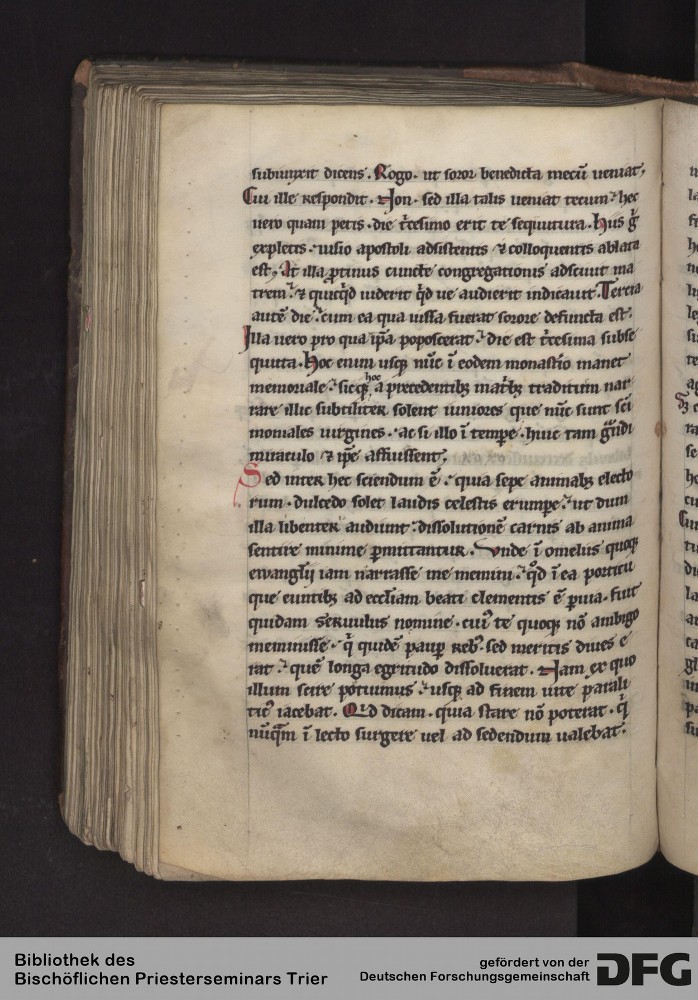 subiunxit dicens. Rogo. ut soror benedicta mecū ueniat.
Cui ille respondit. Non. sed illa talis ueniat tecum. hec
uero quam petis. die t͛cesimo erit te sequutura. Hiis g͛
expletis. uisio apostoli adsistentis ⁊ colloquentis ablata
est. At illa ꝓtinus cuncte congregationis adsciuit ma
trem. ⁊ quicq̇d uiderit q̇d ue audierit indicauit. Tercia
autē die. cum ea qua iussa fuerat sorore defuncta est.
Illa uero pro qua ip̄a poposcerat. die est t͛cesima subse
quuta. Hoc enim usq; nūc ī eodem monast͛io manet
memoriale. sicq; hoc a precedentibꝫ mat͛bꝫ traditum nar
rare illic subtiliter solent iuniores que nūc sunt sc̄i
moniales uirgines. ac si illo ī tempe. huic tam g͛ndi
miraculo ⁊ ip̄e affuissent.
Sed inter hec sciendum ē. quia sepe animabꝫ electo
rum. dulcedo solet laudis celestis erumpe. ut dum
illa libenter audiunt. dissolutionē carnis ab anima
sentire minime ꝑmittantur. Vnde ī omeliis quoq;
ewanglii iam narrasse me memini. qd̓ ī ea porticu
que euntibꝫ ad eccl̄iam beati clementis ē ꝑuia. fuit
quidam seruulus nomine. cui᷒ te quoq; nō ambigo
meminisse. q̇ quidē paup reb᷒. sed meritis diues e
rat. quē longa egritudo dissoluerat. Nam ex quo
illum scire potuimus. usq; ad finem uite parali
tic᷒ iacebat. Qid dicam. quia stare nō poterat. q̇
nūq̄m ī lecto surgere uel ad sedendum ualebat.
Bibliothek des
Bischöflichen Priesterseminars Trier
gefördert von der
Deutschen Forschungsgemeinschaft
DFG